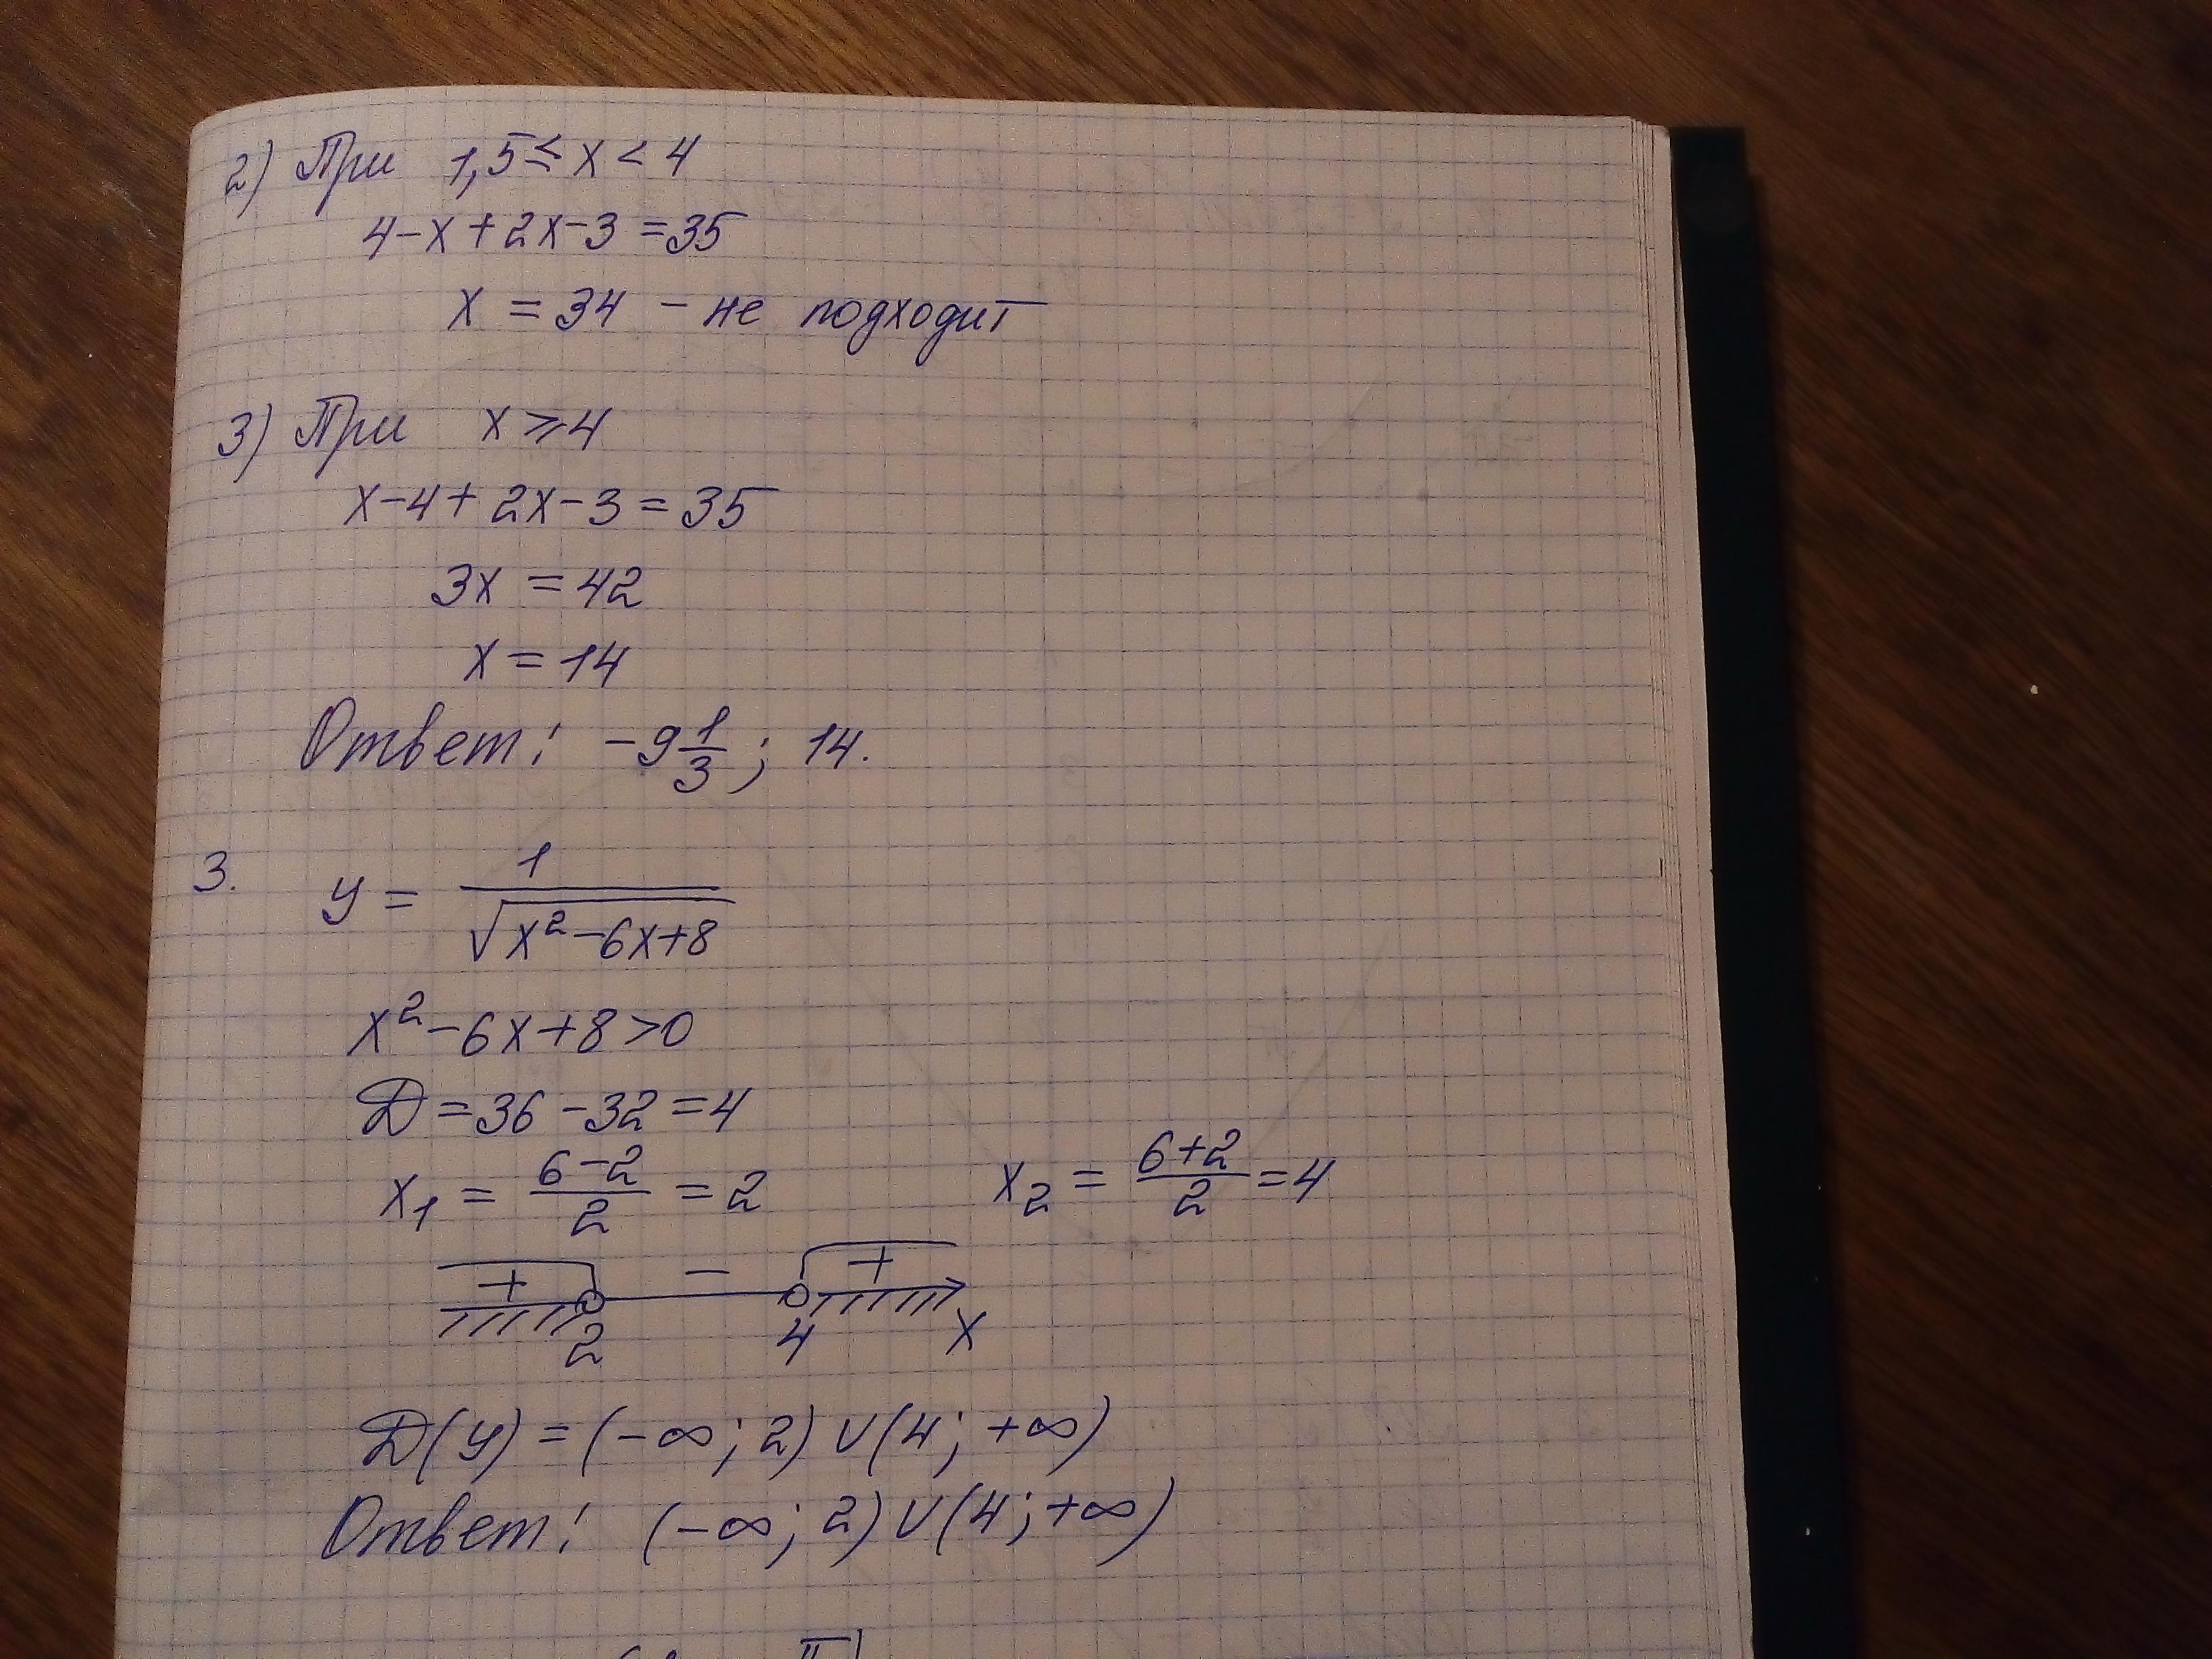 2) При 1,5 ≤ x < 4
4-x+2x-3=35
x = 34 - не подходит
3) При x ⩾ 4
x-4+2x-3=35
3x = 42
x = 14
Ответ: -9 1/3; 14.
3. y = 1/√(x²-6x+8)
x²-6x+8>0
D=36-32=4
x₁ = (6-2)/2 = 2 x₂ = (6+2)/2 = 4
+ - +
2 4 x
D(y) = (-∞; 2) ∪ (4; +∞)
Ответ: (-∞; 2) ∪ (4; +∞)